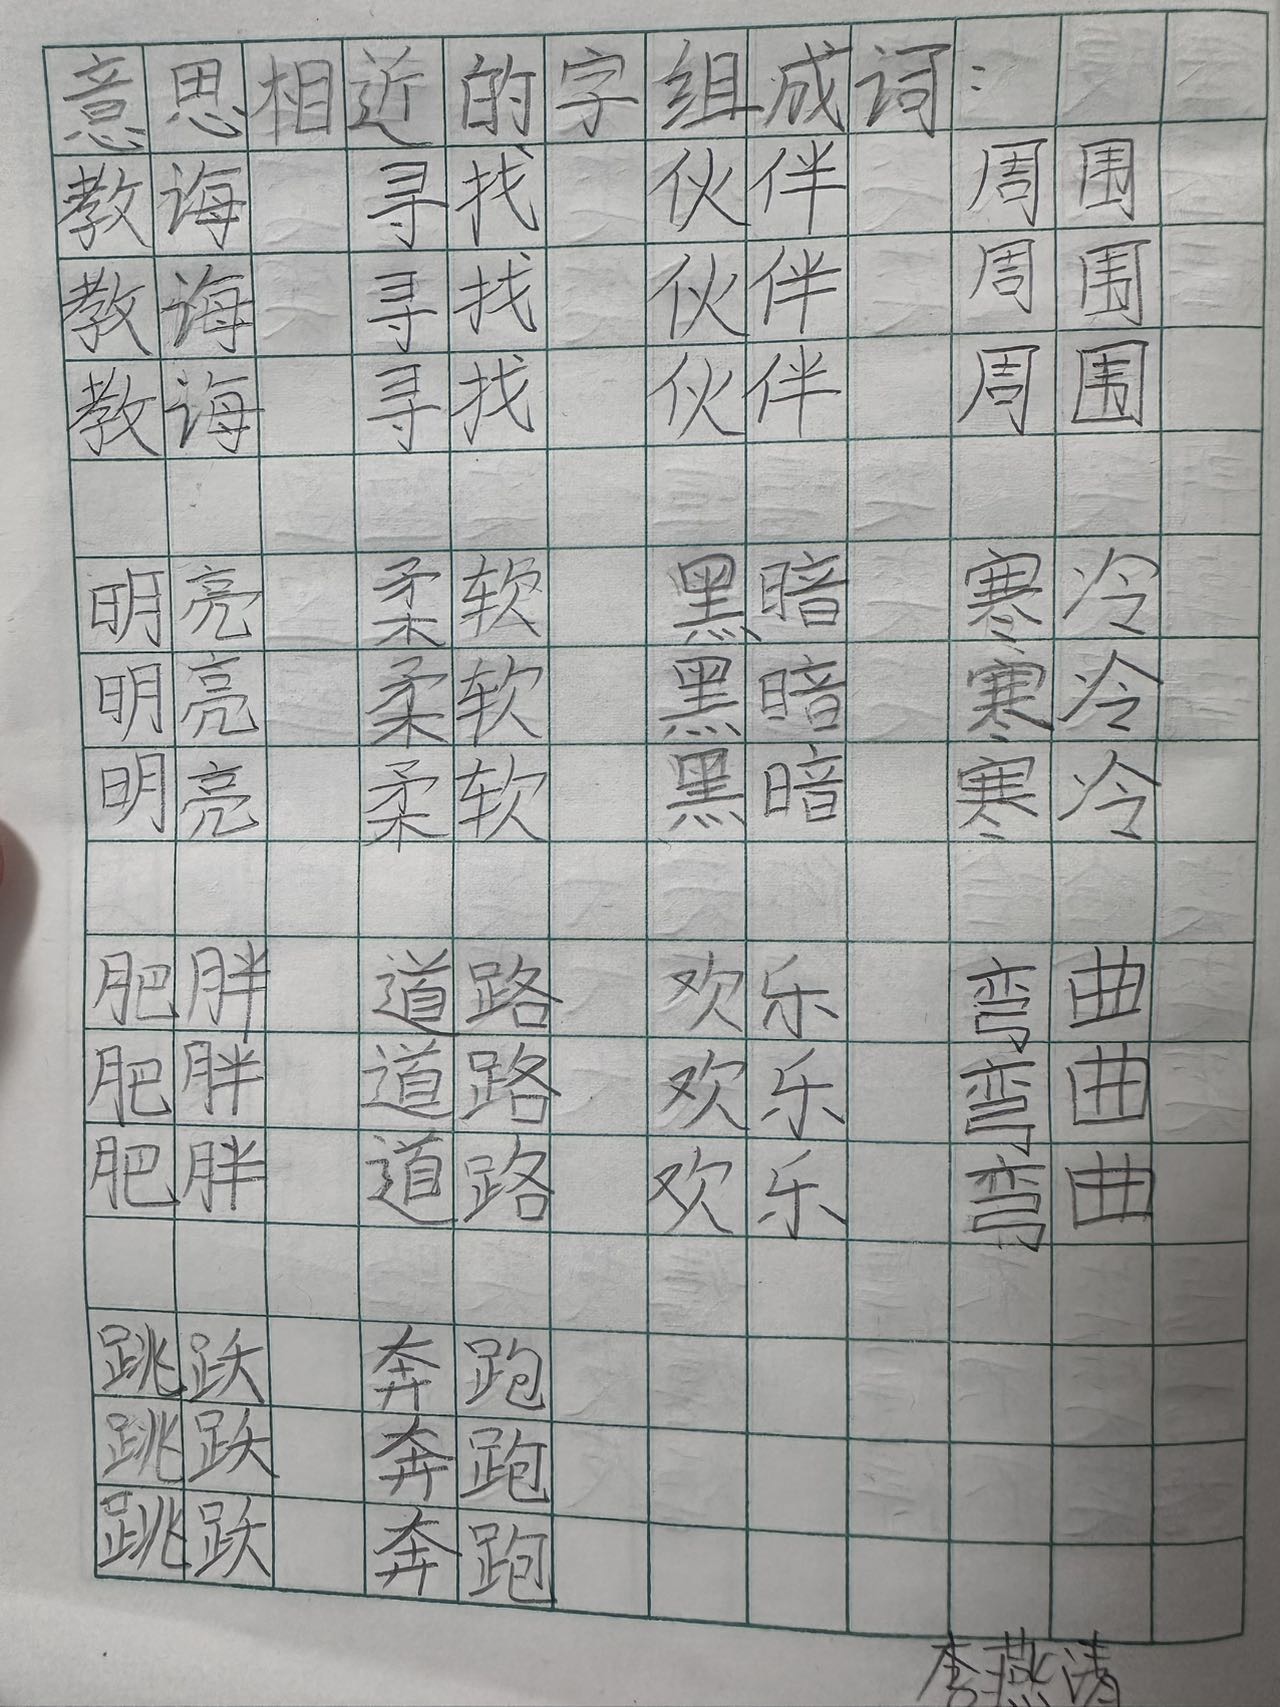 意思相近的字组成词：
教诲 寻找 伙伴 周围
教诲 寻找 伙伴 周围
教诲 寻找 伙伴 周围
明亮 柔软 黑暗 寒冷
明亮 柔软 黑暗 寒冷
明亮 柔软 黑暗 寒冷
肥胖 道路 欢乐 弯曲
肥胖 道路 欢乐 弯曲
肥胖 道路 欢乐 弯曲
跳跃 奔跑
跳跃 奔跑
跳跃 奔跑
李燕清